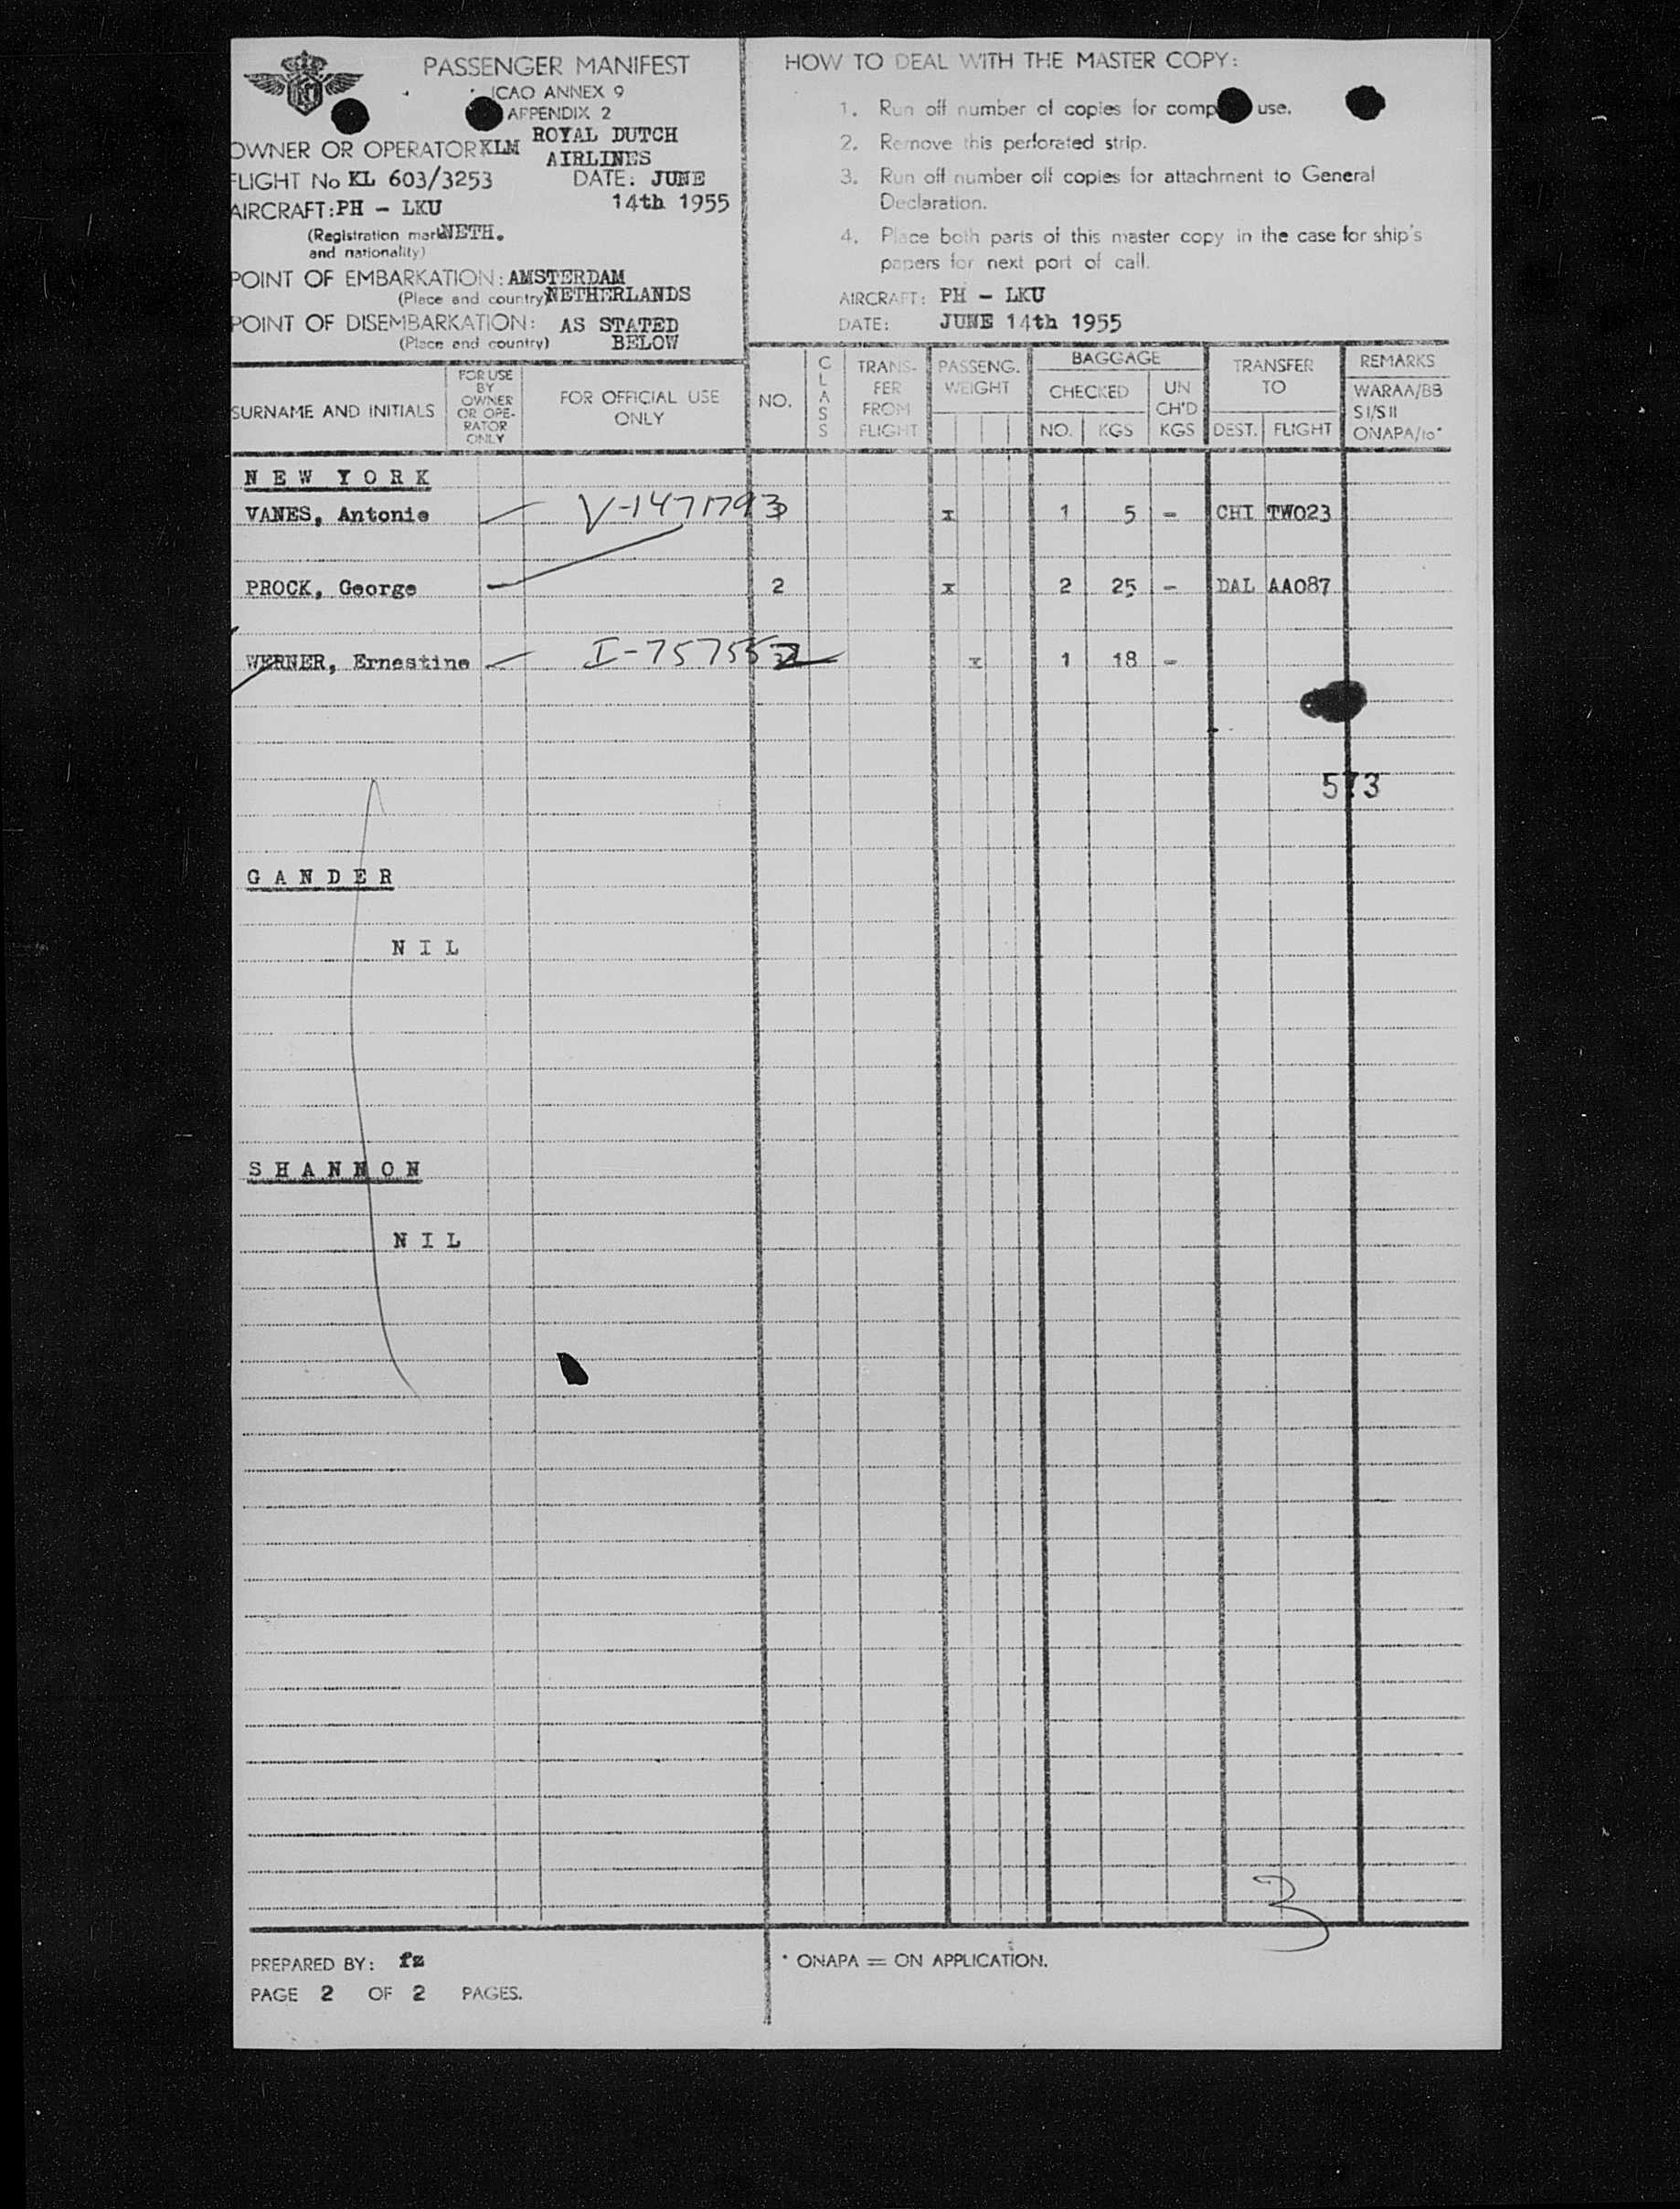 PASSENGER MANIFEST
ICAO ANNEX 9
APPENDIX 2
OWNER OR OPERATOR KLM ROYAL DUTCH
AIRLINES
FLIGHT No KL 603/3253 DATE: JUNE
14th 1955
AIRCRAFT: PH - LKU
(Registration mark NETH.
and nationality)
POINT OF EMBARKATION: AMSTERDAM
(Place and country) NETHERLANDS
POINT OF DISEMBARKATION: AS STATED
(Place and country) BELOW
HOW TO DEAL WITH THE MASTER COPY:
1. Run off number of copies for comp use.
2. Remove this perforated strip.
3. Run off number off copies for attachment to General
Declaration.
4. Place both parts of this master copy in the case for ship's
papers for next port of call.
AIRCRAFT: PH - LKU
DATE: JUNE 14th 1955
SURNAME AND INITIALS
FOR USE
BY
OWNER
OR OPE-
RATOR
ONLY
FOR OFFICIAL USE
ONLY
NO.
CLASS
TRANS-
FER
FROM
FLIGHT
PASSENG.
WEIGHT
BAGGAGE
CHECKED
NO. KGS
UN
CH'D
KGS
TRANSFER
TO
DEST. FLIGHT
REMARKS
WARAA/BB
SI/SII
ONAPA/10*
NEW YORK
VANES, Antonie V-1471793 x 1 5 - CHI TW023
PROCK, George 2 x 2 25 - DAL AA087
WERNER, Ernestine I-757552 x 1 18 -
573
GANDER
NIL
SHANNON
NIL
3
PREPARED BY: fz
PAGE 2 OF 2 PAGES.
* ONAPA = ON APPLICATION.